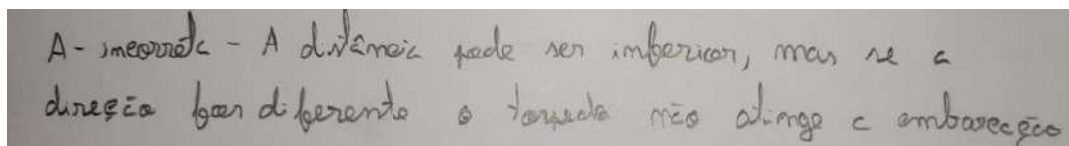 A- incorreta - A distância pode ser inferior, mas se a
direção for diferente o torpedo não atinge a embarcação